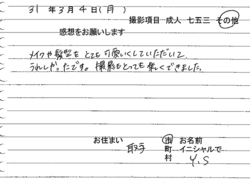 31年3月4日(月)
撮影項目 成人 七五三 その他
感想をお願いします
メイクや髪型をとても可愛いくしていただいて
うれしかったです。撮影もとっても楽しくできました。
お住まい 取手 市 町 村
お名前 イニシャルで
Y.S